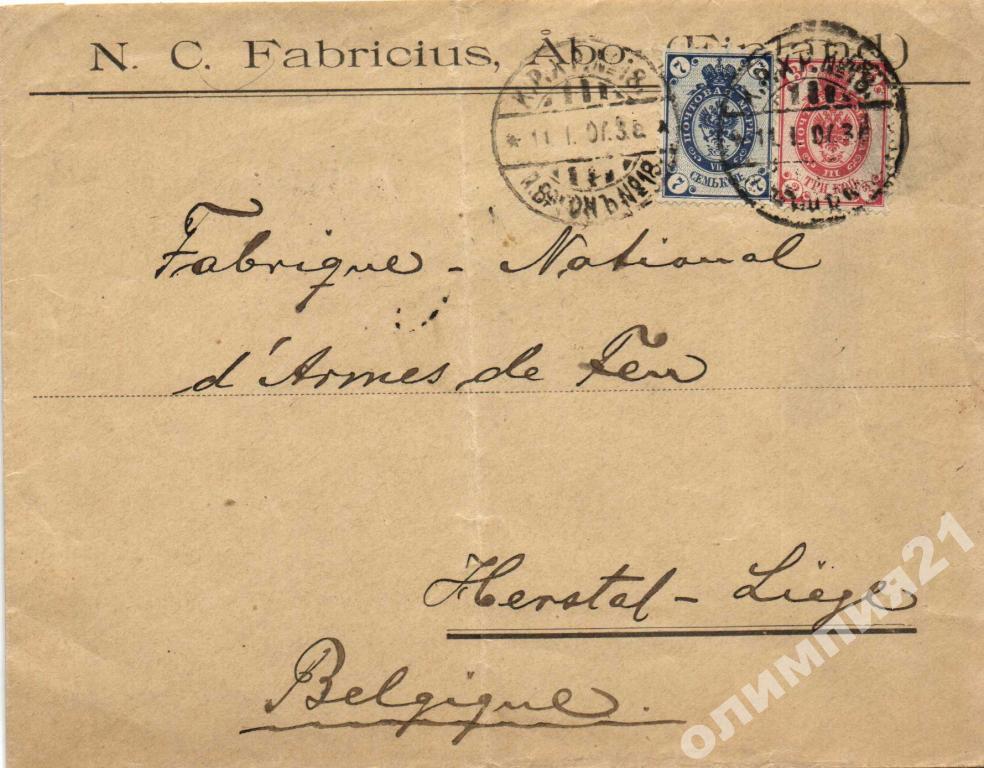 N. C. Fabricius, Åbo. (Finland)
K.P.X.P. №18.
11. I. 07. 3.6
ПОЧТОВАЯ МАРКА
7 7
VII
СЕМЬ КОП.
7 7
11. I. 07. 3.6
III
ТРИ КОП.
Fabrique - National
d'Armes de Feu
Herstal - Liège
Belgique.
олимпия21